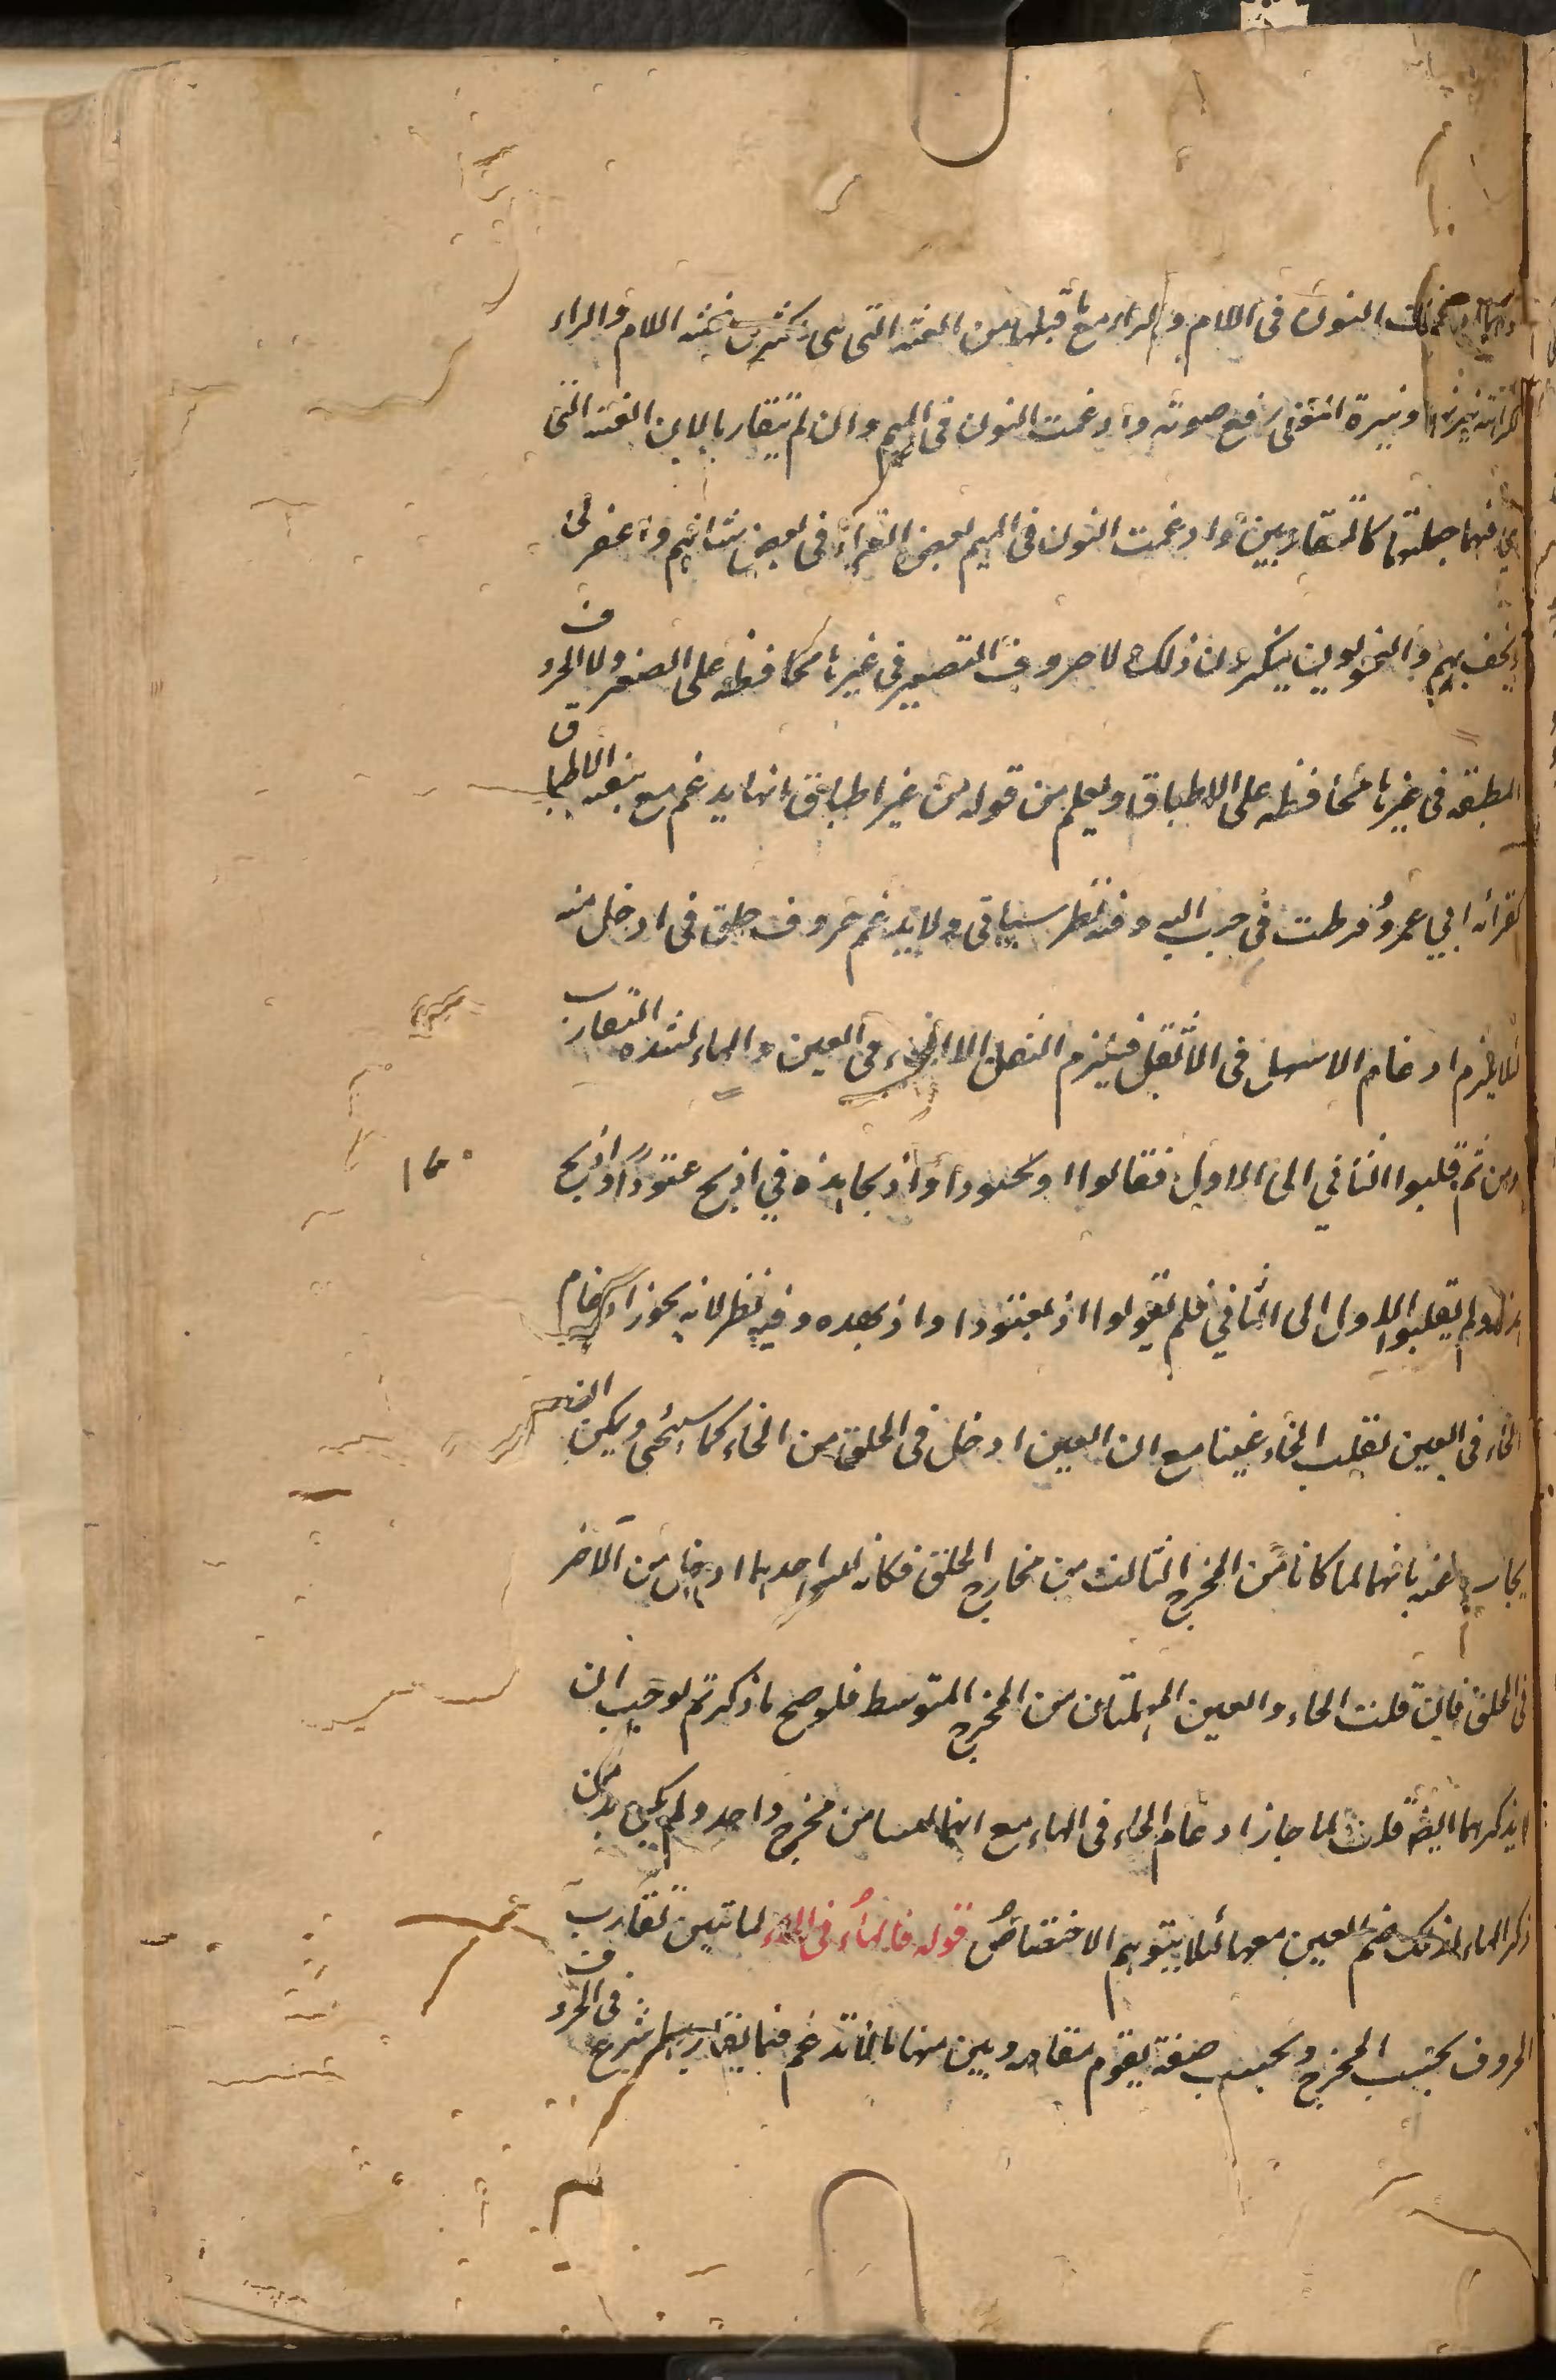 وانما ادغمت النون فى اللام والراء مع ما قبلها من الغنه التى هى اكثر من غنه اللام والراء
لكراهة نبرتها ونبرة المغنى رفع صوته وادغمت النون فى الميم وان لم تتقاربا لان الغنه التى
فيهما جعلتهما كالمتقاربين وادغمت النون فى الميم لبعض القراء فى لبعض شانهم واغفر لى
ونخسف بهم والنحويون ينكرون ذلك لا حروف الصفير فى غيرها محافظه على الصفير ولا الحروف
المطبقه فى غيرها محافظه على الاطباق ويعلم من قوله من غير اطباق انها يدغم مع بقيه الاطباق
كقراءه ابي عمرو فرطت فى جنب الله وفيه نظر سياتى ولا يدغم حروف حلق فى ادخل منه
لئلا يلزم ادغام الاسهل فى الاثقل فيلزم الثقل الا الحاء فى العين والهاء لشده التقارب
ومن ثم قلبوا الثاني الى الاول فقالوا اذبحتودا واذبحاذه في اذبح عتودا اذبح
هذه ولم يقلبوا الاول الى الثاني فلم يقولوا اذبعتودا واذبهده وفيه نظر لانه يجوز ادغام
الخاء فى الغين تقلب الخاء غينا مع ان الغين ادخل فى الحلق من الخاء كما سيجئ ويمكن ان
يجاب عنه بانهما لما كانا من المخرج الثالث من مخارج الحلق فكان ليس احدهما ادخل من الآخر
فى الحلق فان قلت الحاء والعين المهملتان من المخرج المتوسط فلو صح ما ذكرتم لوجب ان
لا يذكرهما ايضا قلت لما جاز ادغام الحاء فى الهاء مع انهما ليسا من مخرج واحد ولم يكن بد من
ذكر الهاء لذلك ضم العين معها لئلا يتوهم الاختصاص قوله فالهاء فى الحاء لما تبين تقارب
الحروف بحسب المخرج وبحسب صفة يقوم مقامه وبين منها ما لا تدغم فيما يقاربها شرع فى الحروف
١٢٠